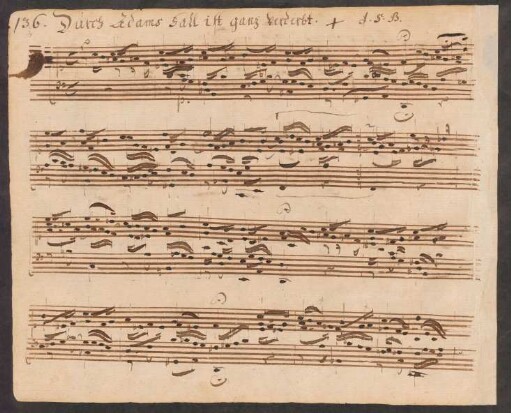 136. Durch Adams Fall ist ganz verderbt. + J. S. B.